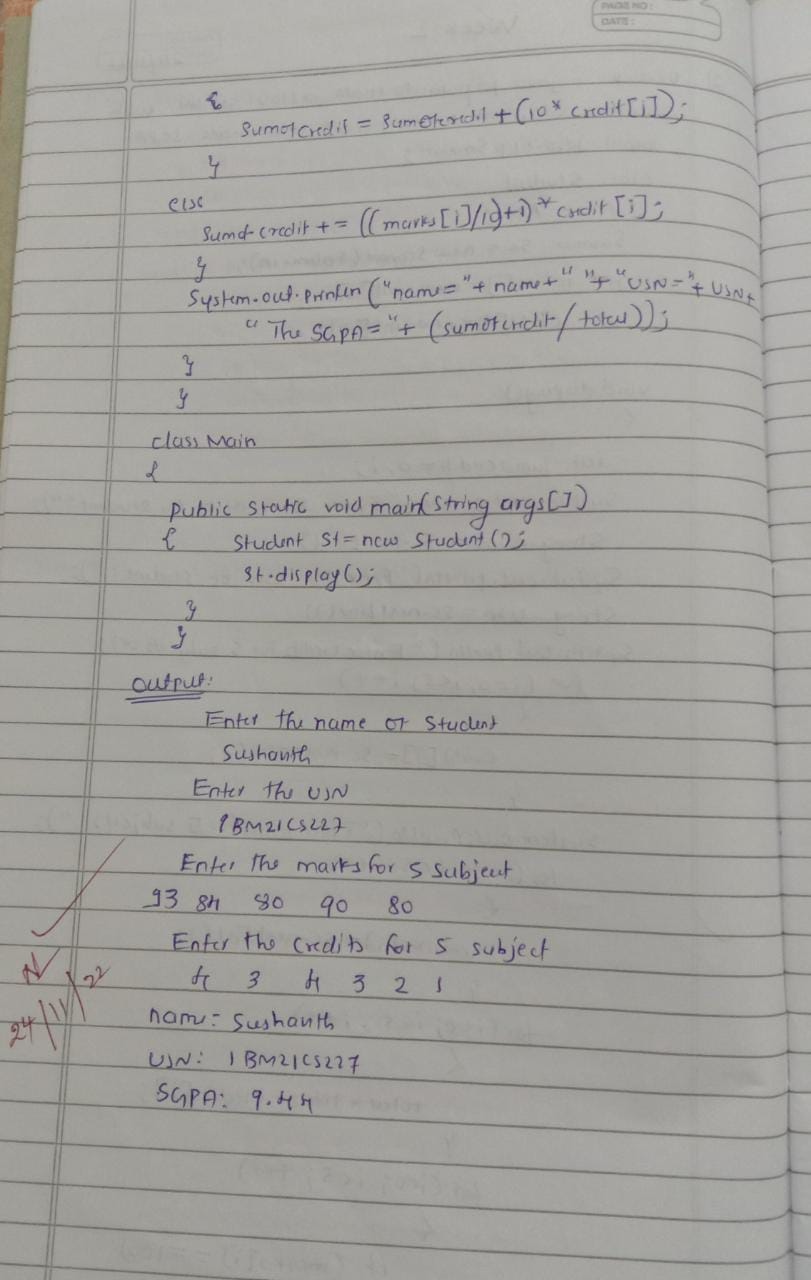 PAGE NO:
DATE:
{
sumofcredit = sumofcredit + (10* credit[i]);
}
else
sumofcredit += ((marks[i]/10)+1)* credit [i];
}
System.out.println ("name="+ name+" "+ "USN="+ USN+
" The SGPA="+ (sumofcredit / total));
}
}
class Main
{
public static void main(String args[])
{ Student st= new Student();
st.display();
}
}
Output:
Enter the name of Student
Sushanth
Enter the USN
1BM21CS227
Enter the marks for 5 subject
93 84 80 90 80
Enter the credits for 5 subject
4 3 4 3 2 1
name= Sushanth
USN: 1BM21CS227
SGPA: 9.44
24/11/22